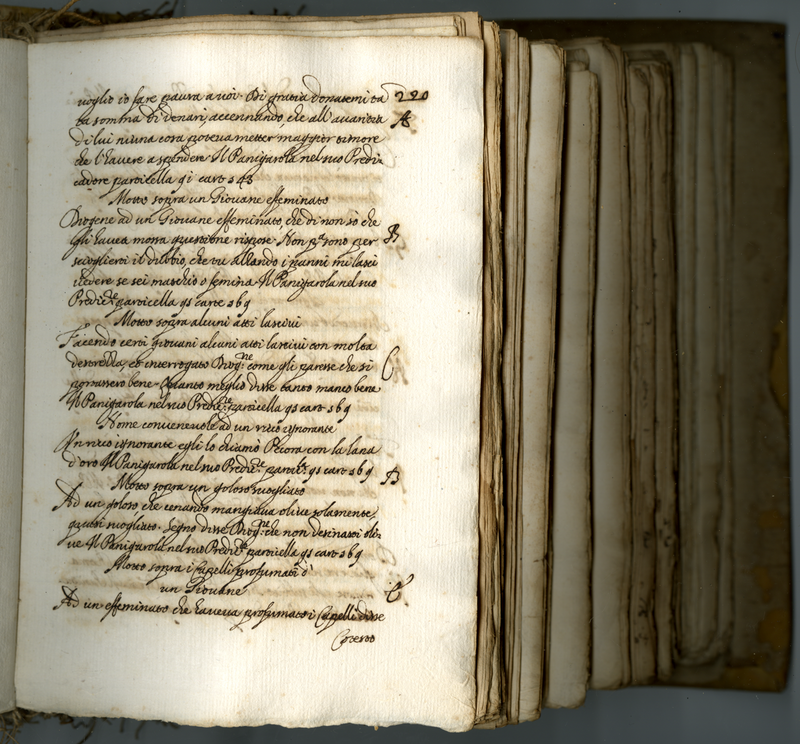 voglio io fare paura a voi. Di gratia donatemi ta 220
ta somma di denari, accennando, che all'avaritia A
di lui niuna cosa poteva metter maggior timore
che l'havere a spendere Il Panigarola nel suo Predi=
catore particella 91 cart 548
Motto sopra un Giovane effeminato
Diogene ad un Giovane effeminato, che di non so che
gli havea mossa questione rispose. Non pª sono per B
scioglierti il dubbio, che tu alzando i panni mi lasci
vedere se sei maschio o femina Il Panigarola nel suo
Predic.re particella 95 carte 569
Motto sopra alcuni atti lascivi
Facendo certi giovani alcuni atti lascivi con molta
destrezza, et interrogato Diog.ne come gli paresse che si C
portassero bene. Quanto meglio disse tanto manco bene
Il Panigarola nel suo Predic.re particella 95 cart 569
Nome convenevole ad un ricco ignorante
Un ricco ignorante egli lo chiamò Pecora con la lana
d'oro Il Panigarola nel suo Predic.re partic.la 95 cart 569 D
Motto sopra un goloso svogliato
Ad un goloso, che cenando mangiava olive solamente,
quasi svogliato. Segno disse Diog.ne che non desinasti oli=
ve Il Panigarola nel suo Predic.re particella 95 cart 569
Motto sopra i Capelli profumati d'
un Giovane E
Ad un effeminato che haveva profumati i Capelli disse